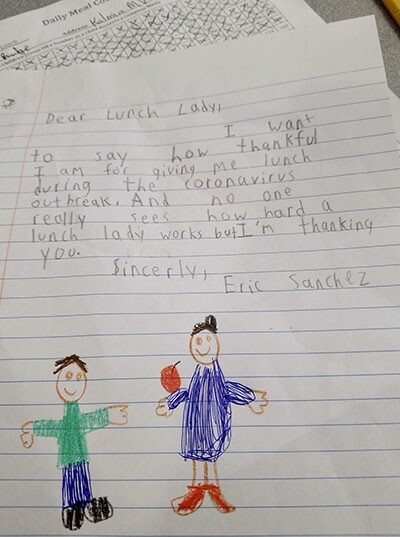 Daily Meal Co
Address:
Dear Lunch Lady,
I want
to say how thankful
I am for giving me lunch
during the coronavirus
outbreak. And no one
really sees how hard a
lunch lady works but I'm thanking
you.
Sincerely,
Eric Sanchez